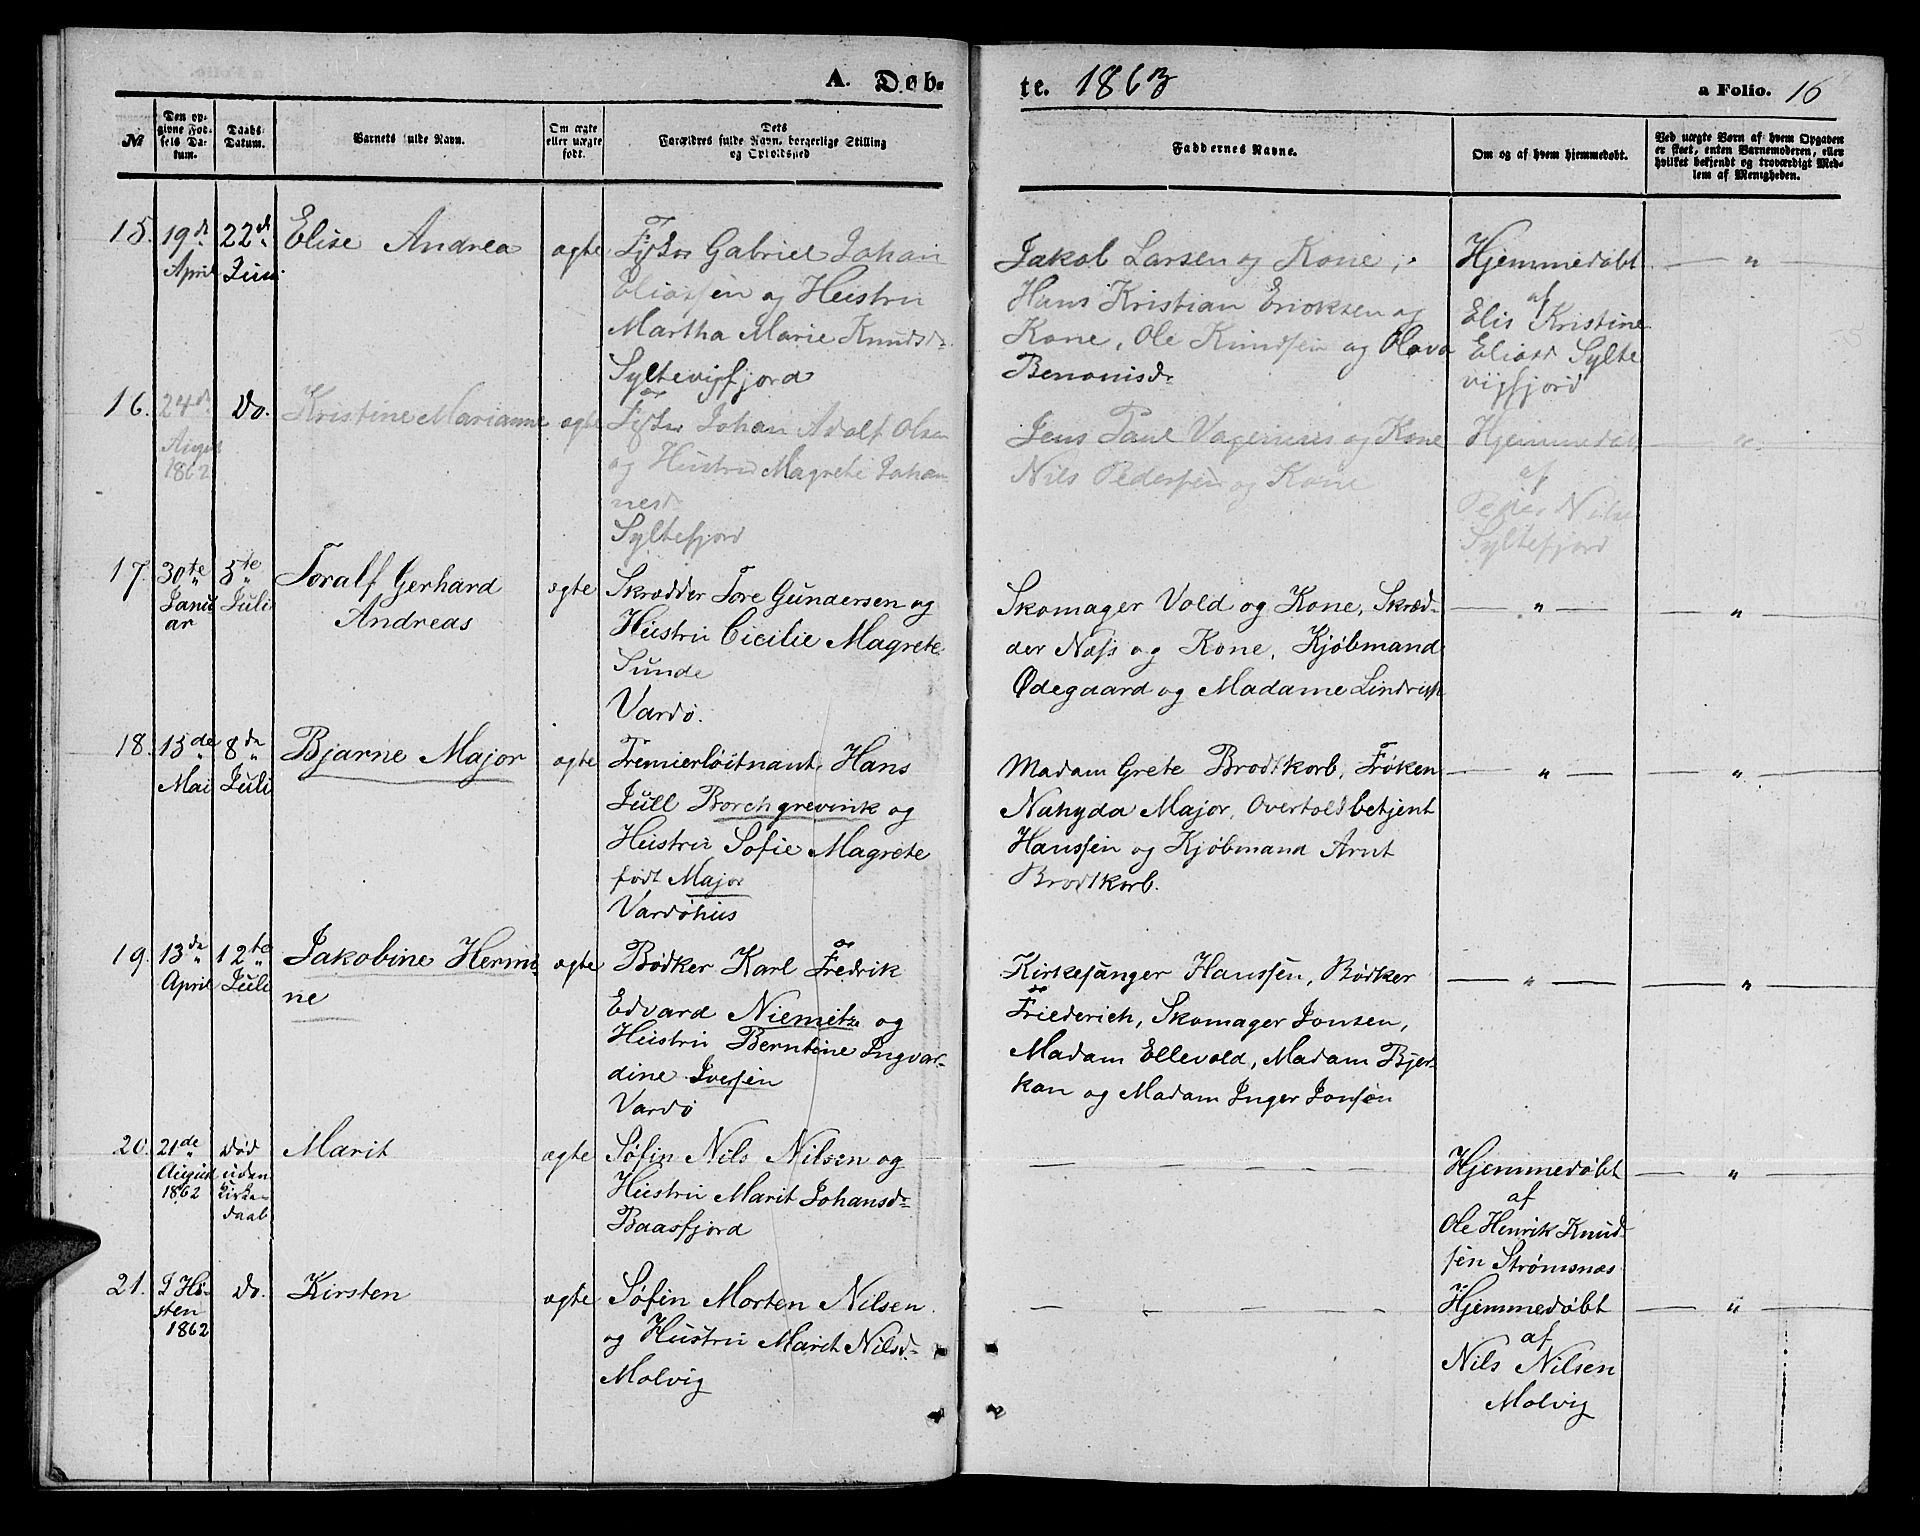 A. Døb-
te. 1863
a Folio. 16
№
Den op-
givne Fød-
sels Da-
tum.
Daabs-
Datum.
Barnets fulde Navn.
Om ægte
eller uægte
født.
Dets
Forældres fulde Navn, borgerlige Stilling
og Opholdsted
Faddernes Navne.
Om og af hvem hjemmedøbt.
Ved uægte Børn af hvem Opgaven
er skeet, enten Barnemoderen, eller
hvilket bekjendt og troværdigt Med-
lem af Menigheden.
15. 19de April
22de Juni
Elise Andrea
ægte
Fisker Gabriel Johan
Eliassen og Hustru
Martha Marie Knudsdr
Syltevigfjord
Jakob Larsen og Kone,
Hans Kristian Eriksen og
Kone, Ole Knudsen og Olava
Benonisdr
Hjemmedøbt
af
Elis Kristine
Eliasd Sylte
vigfjord
— " —
16. 24de
August
1862
Do.
Kristine Marianne
ægte
Fisker Johan Adolf Olsen
og Hustru Magrete Johan
nesd
Syltefjord
Jens Paul Vagerius og Kone
Nils Pedersen og Kone
Hjemmedøbt
af
Peder Nils
Syltefjord
— " —
17. 30te
Janu
ar
5te
Juli
Toralf Gerhard
Andreas
ægte
Skrædder Tore Gundersen og
Hustru Cicilie Magrete
Sunde
Vardö.
Skomager Vold og Kone, Skræd-
der Næss og Kone, Kjøbmand
Ødegaard og Madame
— " —
— " —
18. 15de
Mai
8de
Juli
Bjarne Major
ægte
Premierløitnant Hans
Jull Borchgrevink og
Hustru Sofie Magrete
født Major
Vardöhus
Madam Grete Brodtkorb, Frøken
Nahyda Major, Overtoldbetjent
Hanssen og Kjøbmand Arnt
Brodtkorb.
— " —
— " —
19. 13de
April
12te
Juli
Jakobine Hermi
ne
ægte
Bødker Karl Fredrik
Edvard Niemitz og
Hustru Berntine Ingvar-
dine Iversen
Vardö
Kirkesanger Hanssen, Bødker
Friederich, Skomager Jonsen,
Madam Ellevold, Madam Bjer-
kan og Madam Inger Jonsen
— " —
— " —
20. 21de
August
1862
Død
uden
Kirke-
daab
Marit
ægte
Søfin Nils Nilsen og
Hustru Marit Johansdr
Baasfjord
— — — —
Hjemmedøbt
af
Ole Henrik Knud-
sen Strømsnæs
— " —
21. I Hø-
sten
1862
Do.
Kirsten
ægte
Søfin Morten Nilsen
og Hustru Marit Nilsd
Molvig
— — — —
Hjemmedøbt
af
Nils Nilsen
Molvig
— " —